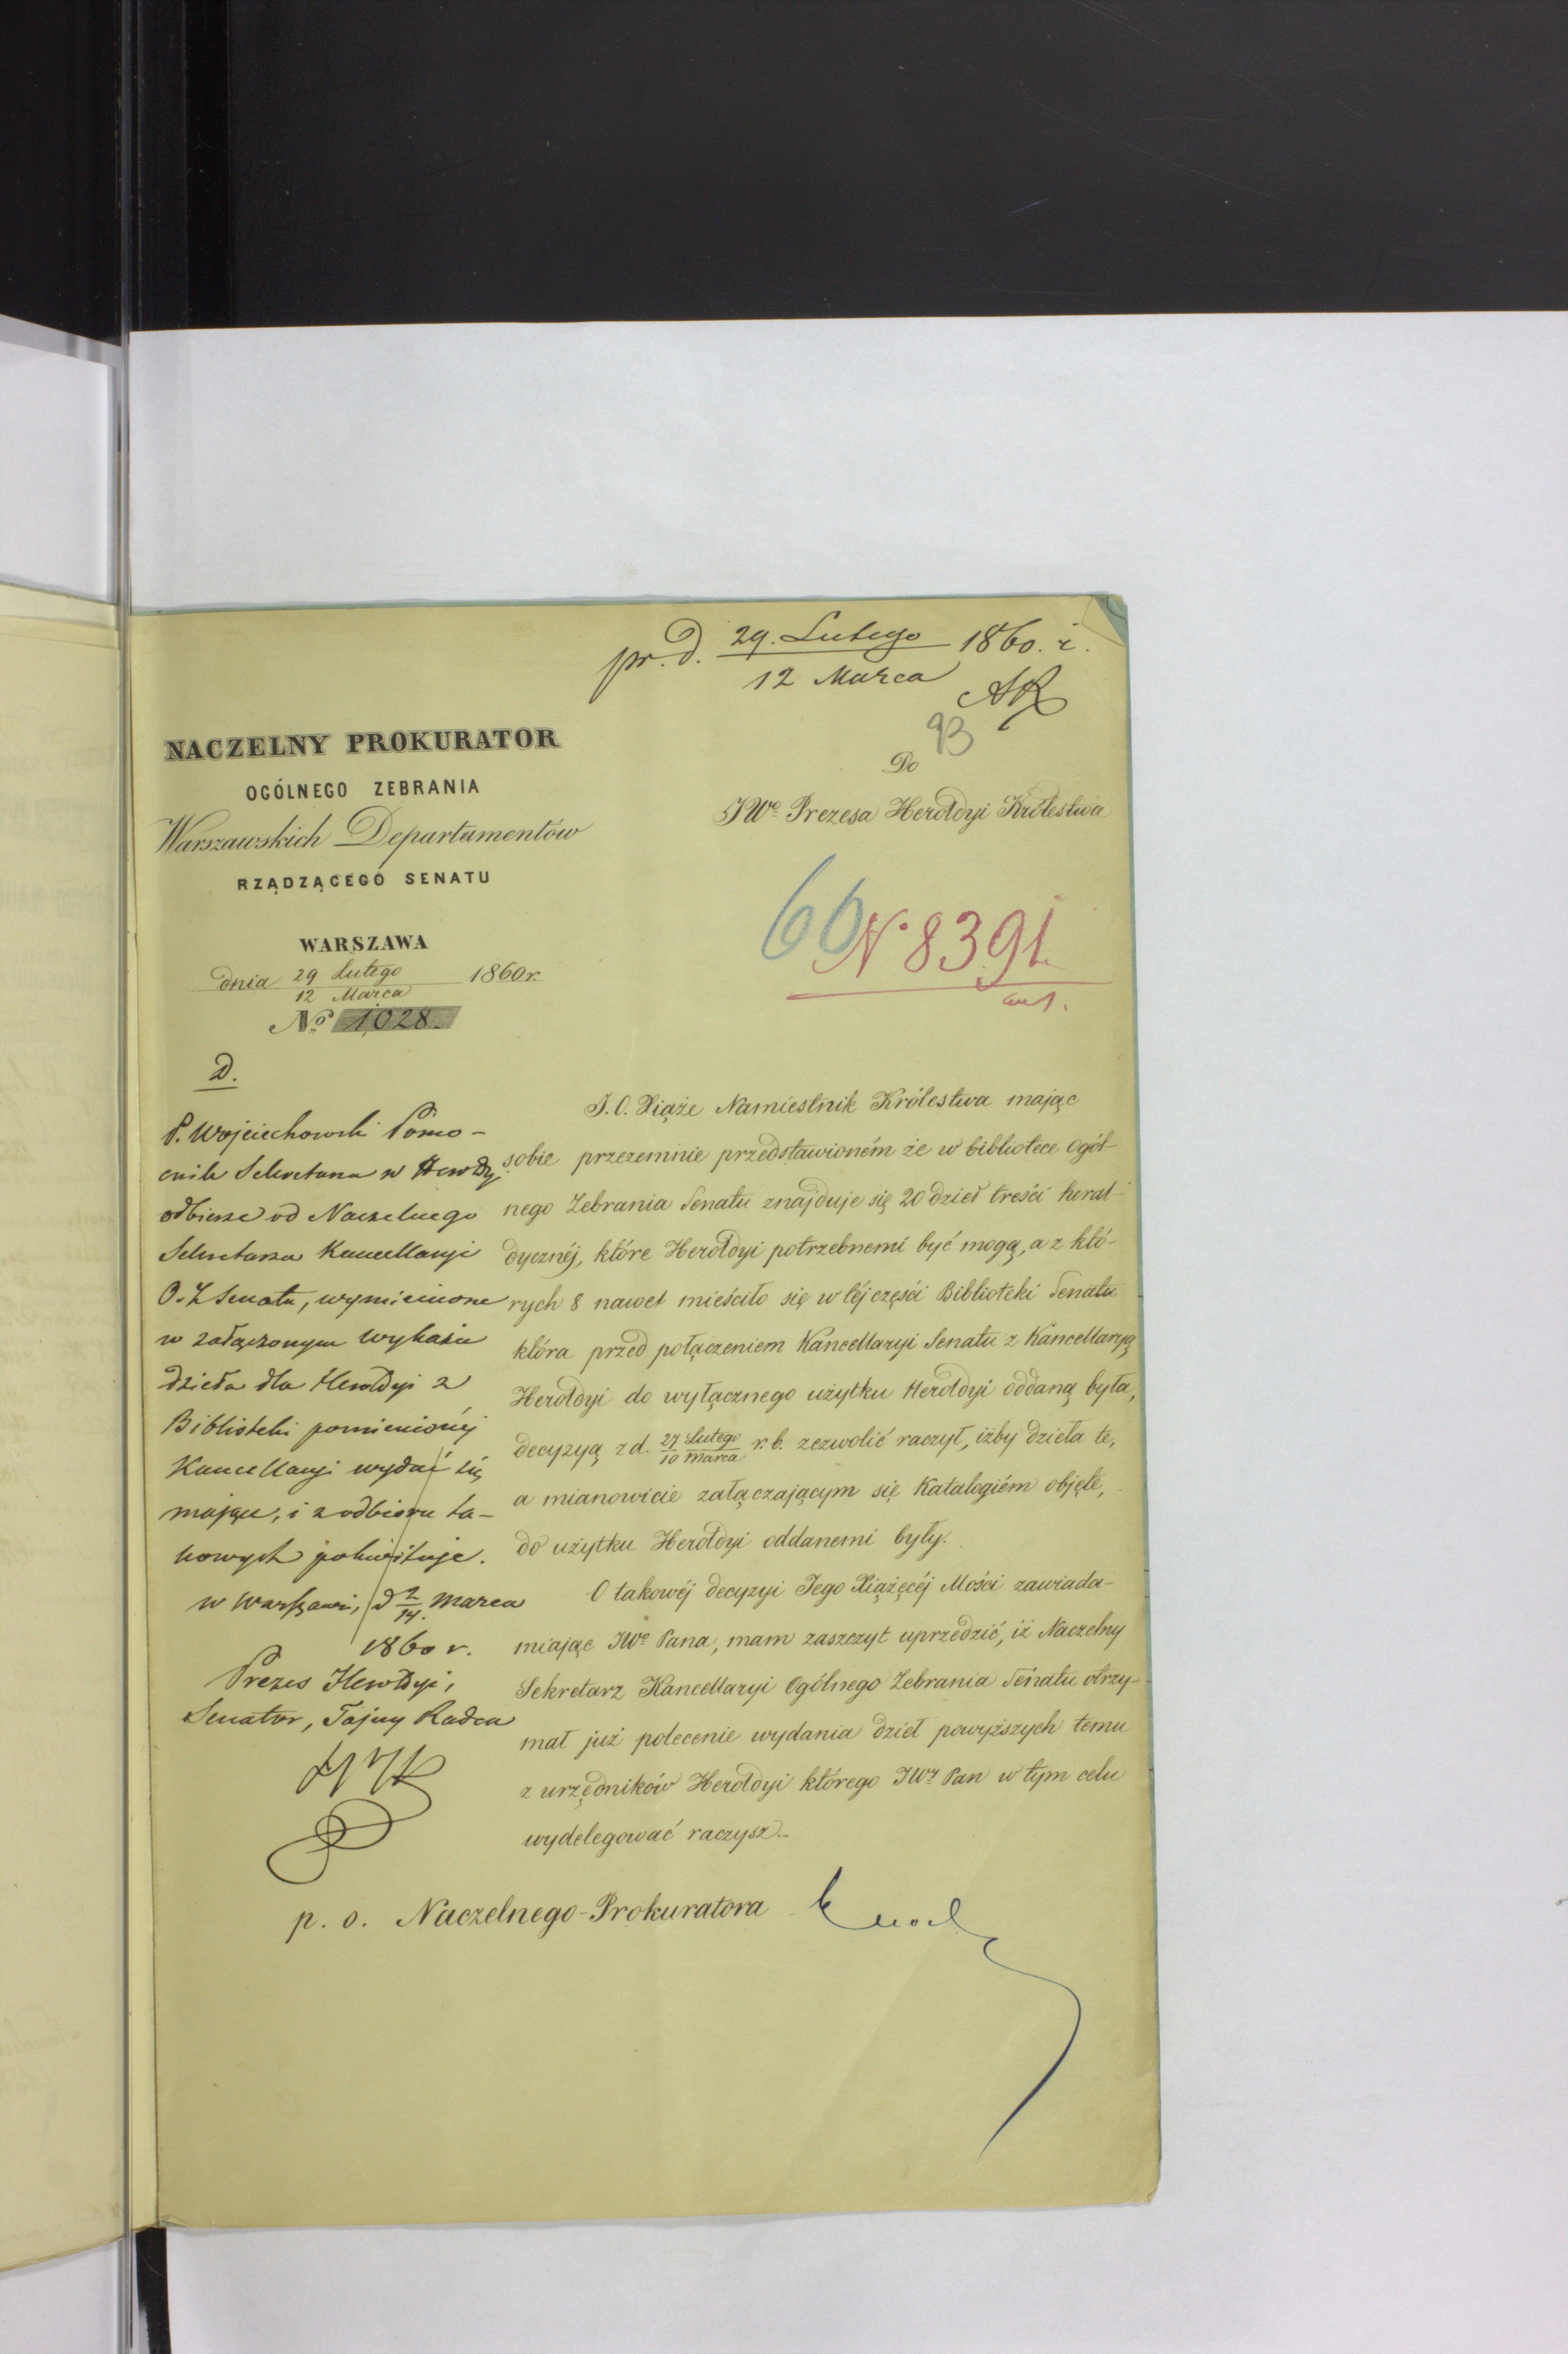 pr. d. 29. Lutego 1860. r.
12 Marca
93
NACZELNY PROKURATOR
OGÓLNEGO ZEBRANIA
Warszawskich Departamentów
RZĄDZĄCEGO SENATU
WARSZAWA
dnia 29 Lutego 1860 r.
12 Marca
No 1,028.
Do
JWo Prezesa Heroldyi Królestwa
66
No 8391.
D.
P. Wojciechowski Pomo-
cnik Sekretarza w Herold;
odbierze od Naczelnego
Sekretarza Kancellaryi
O. Z Senatu, wymienione
w załączonym wykazie
dzieła dla Heroldyi z
Biblioteki pomienionéj
Kancellaryi wydać się
mające, i z odbioru ta-
kowych pokwituje.
w Warszawie, d 2/14. Marca
1860 r.
Prezes Heroldyi,
Senator, Tajny Radca
J. O. Xiąże Namiestnik Królestwa mając
sobie przezemnie przedstawioném że w bibliotece Ogól-
nego Zebrania Senatu znajduje się 20 dzieł treści heral-
dycznéj, które Heroldyi potrzebnemi być mogą, a z któ-
rych 8 nawet mieściło się w téj części Biblioteki Senatu
która przed połączeniem Kancellaryi Senatu z Kancellaryą
Heroldyi do wyłącznego użytku Heroldyi oddaną była,
decyzyą z d. 27 Lutego/10 Marca r. b. zezwolić raczył, iżby dzieła te,
a mianowicie załączającym się Katalogiém objęte,
do użytku Heroldyi oddanemi były.
O takowéj decyzyi Jego Xiążęcéj Mości zawiada-
miając JWo Pana, mam zaszczyt uprzedzić, iż Naczelny
Sekretarz Kancellaryi Ogólnego Zebrania Senatu otrzy-
mał już polecenie wydania dzieł powyższych temu
z urzędników Heroldyi którego JWy Pan w tym celu
wydelegować raczysz.
p. o. Naczelnego-Prokuratora